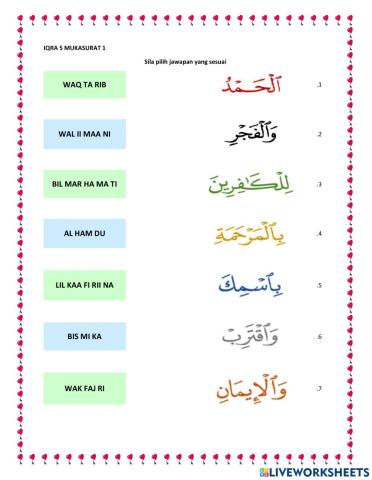 IQRA 5 MUKASURAT 1
Sila pilih jawapan yang sesuai
WAQ TA RIB ٱلْحَـمْدُ .1
WAL II MAA NI وَٱلْفَجْرِ .2
BIL MAR HA MA TI لِلْكَـٰفِرِينَ .3
AL HAM DU بِٱلْمَرْحَمَةِ .4
LIL KAA FI RII NA بِٱسْمِكَ .5
BIS MI KA وَٱقْتَرِبْ .6
WAK FAJ RI وَٱلْإِيمَانِ .7
LIVEWORKSHEETS